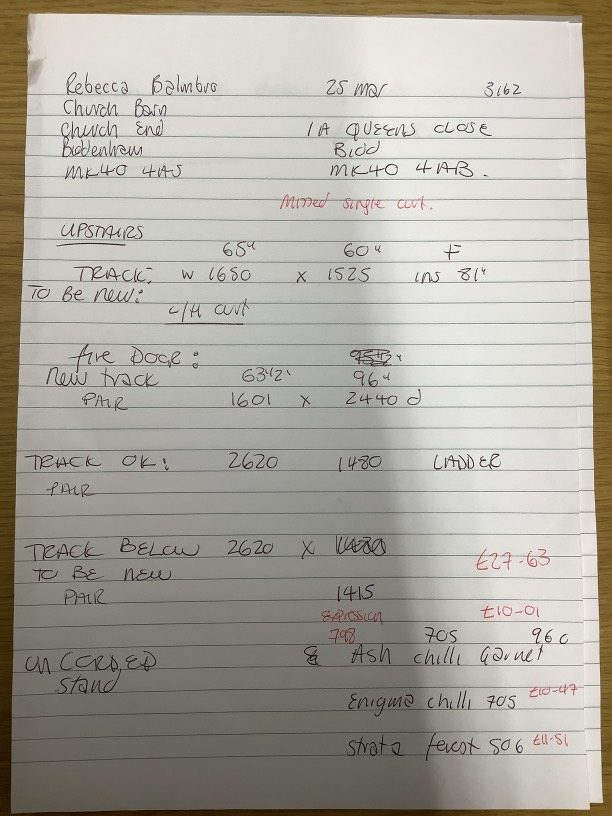 Rebecca Balmbro 25 mar 3162
Church Barn
Church End 1A QUEENS CLOSE
Biddenham Bidd
MK40 4AS MK40 4AB.
Missed single curt.
UPSTAIRS
65" 60" F
TRACK: W 1650 X 1525 INS 81"
TO Be new:
L/H curt
fire DOOR:
New track 63"2" 96"
PAIR 1601 X 2440 d
TRACK OK: 2620 1480 LADDER
PAIR
TRACK BELOW 2620 X
TO BE NEW £27-63
PAIR 1415
Expression £10-01
798 705 960
UNCORDED & Ash chilli Garnet
Stand
Enigma chilli 705 £10-47
Strata 506 £11-51